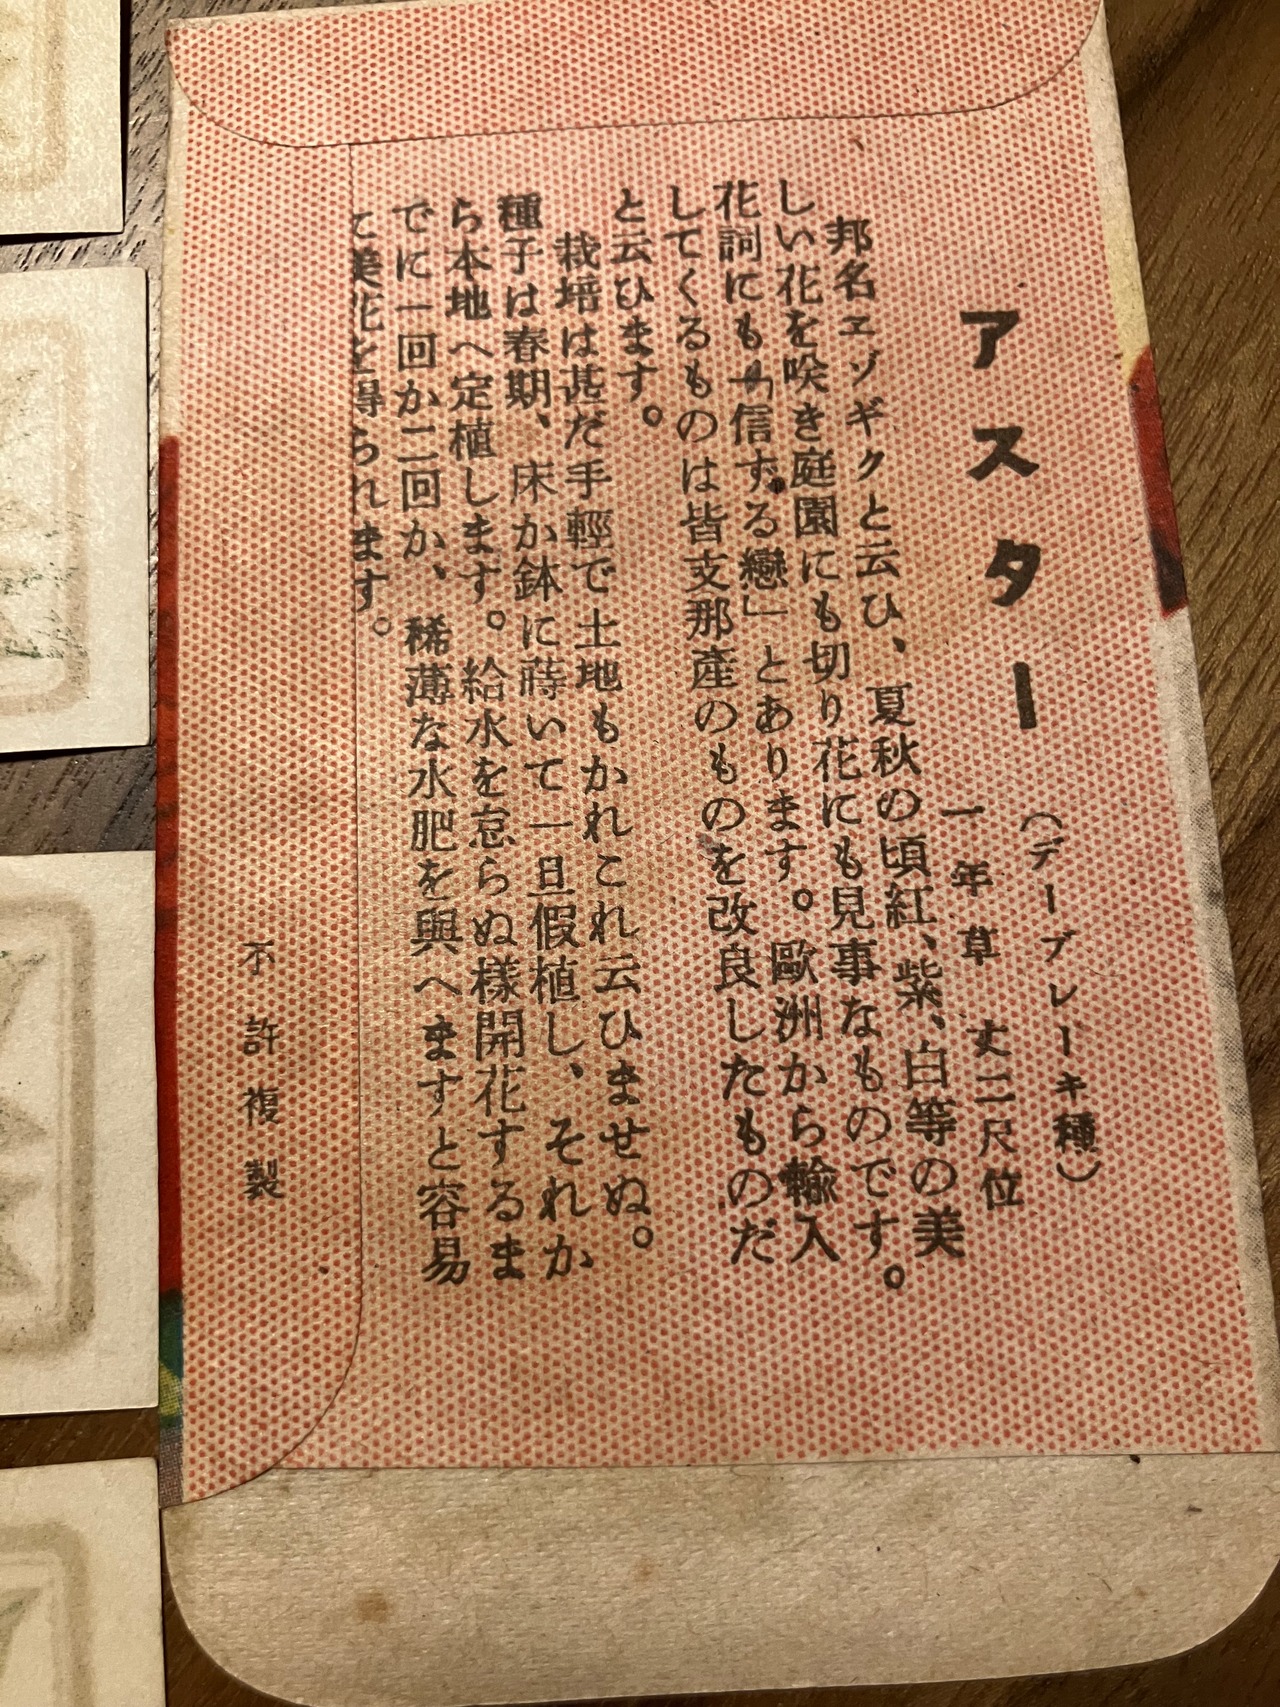 アスター
（デーブレーキ種）
一年草 丈二尺位
邦名ヱゾギクと云ひ、夏秋の頃紅、紫、白等の美
しい花を咲き庭園にも切り花にも見事なものです。
花詞にも「信ずる戀」とあります。歐洲から輸入
してくるものは皆支那産のものを改良したものだ
と云ひます。
栽培は甚だ手輕で土地もかれこれ云ひませぬ。
種子は春期、床か鉢に蒔いて一旦假植し、それか
ら本地へ定植します。給水を怠らぬ樣開花するま
でに一回か二回か、稀薄な水肥を與へますと容易
て美花を得られます。
不許複製